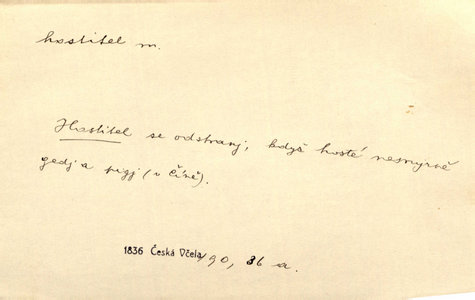 hostitel m.
Hostitel se odstranj, když hosté nesmyrně
gedj a pigj (v Číně).
1836 Česká Včela 190, 36 a.